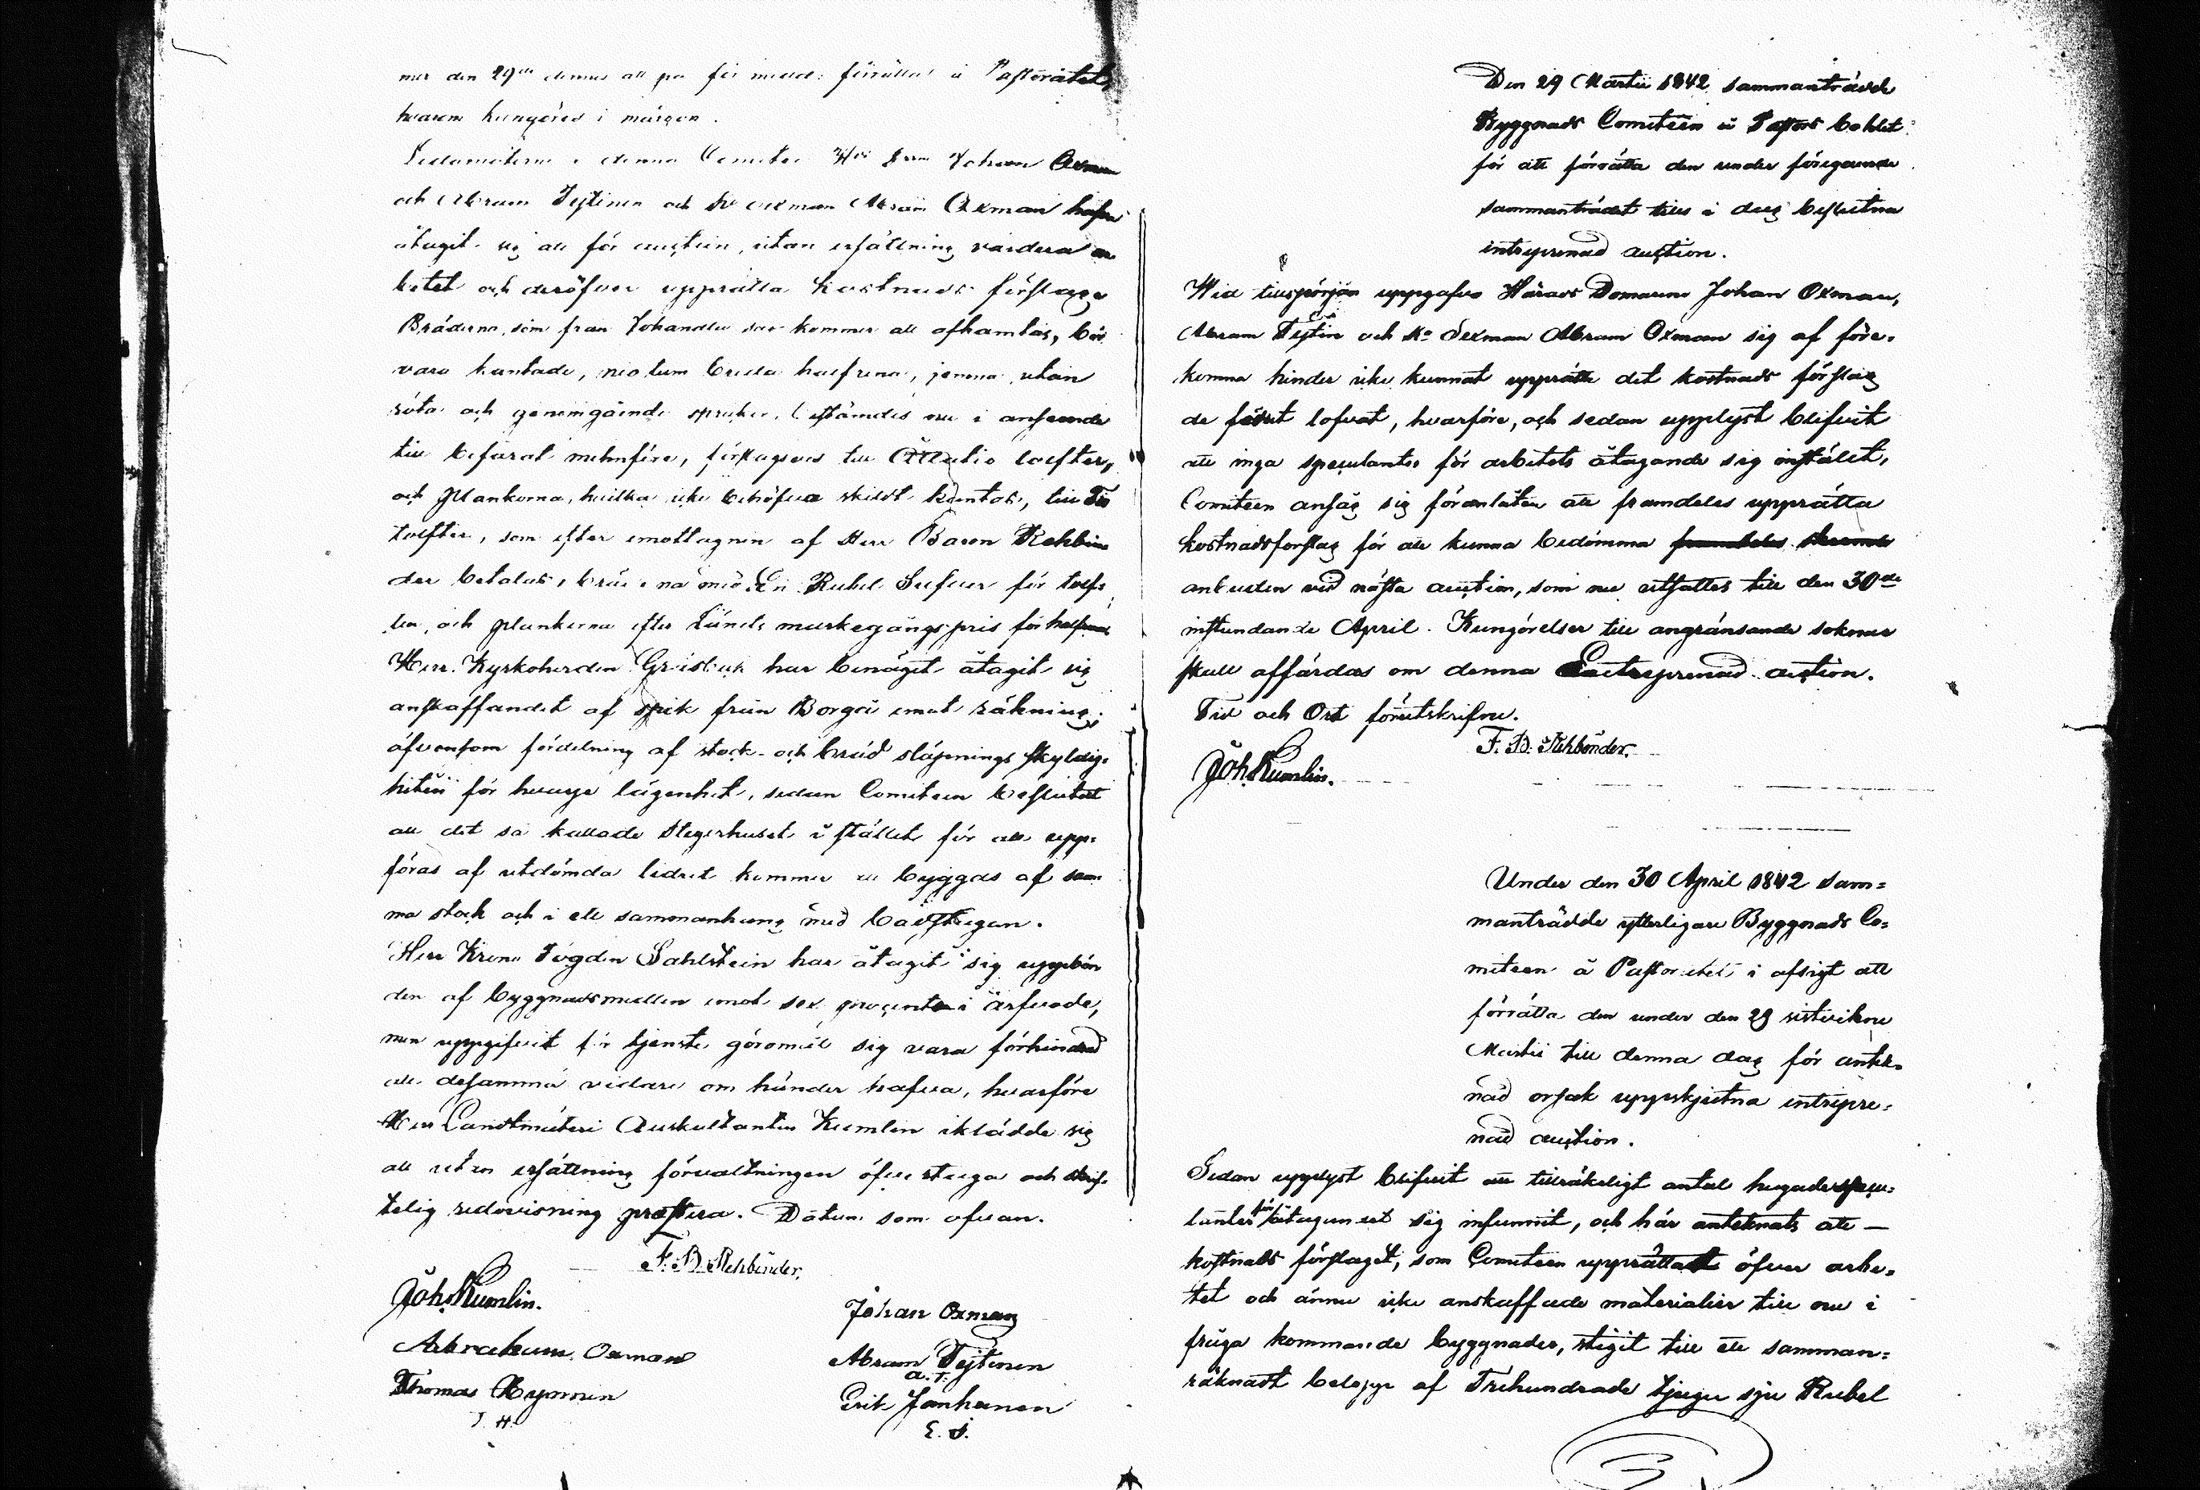 mer den 29de dennes att på för middl: förrättas å Pastoratet,
hvarom kungöres i
Ledamöterne i denna Comitee Johan Oxman
och Abram Tejtinen och Sexman Abram Oxman hafva
åtagit sig att för auction, utan ersättning värdera ar
betet och deröfver upprätta kostnads förslag
Bräderna, som från Johandlu såg kommer att afhämtas, bör
vara kantade, nio tum breda hvifvena, jemna utan
röta och genomgående sprickor. Bestämdes nu i anseende
till befarat menföre, förslagsvis till Åttatio tolfter,
och plankorna, hvilka icke behöfva skildt kantas, till Tio
tolfter, som efter emottagnin af Herr Baron Rehbin
der betalas, bräderna med En Rubel Silfver för tolf
ten, och plankorna efter Länets markegångspris för
Herr Kyrkoherden har benäget åtagit sig
anskaffandet af spik från Borgå emot räkning;
äfvensom fördelning af stock- och bräd släpnings skyldig-
heten för hvarje lägenhet, sedan Comiteen beslutat
att det så kallade Stegerhuset i stället för att upp-
föras af utdömda lidret kommer att byggas af sam-
ma stock och i ett sammanhang med badstugan.
Herr Krono Fogden Sahlstein har åtagit sig uppbör
den af byggnadsmedlen emot sex procent i arfvode,
men uppgifvit för tjenste göromål sig vara förhindrad
att desamma vidare om händer hafva, hvarföre
Herr Landtmäteri Auskultanten Kumlin iklädde sig
att utan ersättning förvaltningen öfvertaga och skrif-
telig redovisning præstera. Datum som ofvan.
F. B. Rehbinder.
Joh. Kumlin.
Johan Oxman
Abraham Oxman
Abram Tejtinen
A. T.
Thomas Hynninen
T. H.
Erik Janhunen
E. J.
Den 29 Martii 1842 sammanträdde
Byggnads Comiteen å Pastors Bohlet
för att förrätta den under föregående
sammanträdet till i dag beslutna
intreprenad auction.
Wid tillspörjan uppgåfvo Härads Domarene Johan Oxman,
Abram Tejtin och Ko Sexman Abram Oxman sig af före-
komna hinder icke kunnat upprätta det kostnads förslag
de förut lofvat, hvarföre, och sedan upplyst blifvit
att inga speculanter för arbetets åtagande sig instält,
Comiteen ansåg sig föranlåten att framdeles upprätta
kostnadsförslag för att kunna bedömma
anbuden vid nästa auction, som nu utsattes till den 30de
instundande April. Kungörelser till angränsande soknar
skall affärdas om denna Entreprenad auction.
Tid och Ort förutskrifne.
F. B. Rehbinder.
Joh. Kumlin.
Under den 30 April 1842 sam-
manträdde ytterligare Byggnads Co-
miteen å Pastoratet i afsigt att
förrätta den under den 29 sistvikne
Martii till denna dag för anteck-
nad orsak uppskjutna intrepre-
nad auction.
Sedan upplyst blifvit att tillräkeligt antal hugade specu-
lanter för åtagandet sig infunnit, och här antecknats att —
kostnads förslaget, som Comiteen upprättat öfver arbe-
tet och ännu icke anskaffade materialier till nu i
fråga kommande byggnader, stigit till ett samman-
räknadt belopp af Trehundrade tjugu sju Rubel